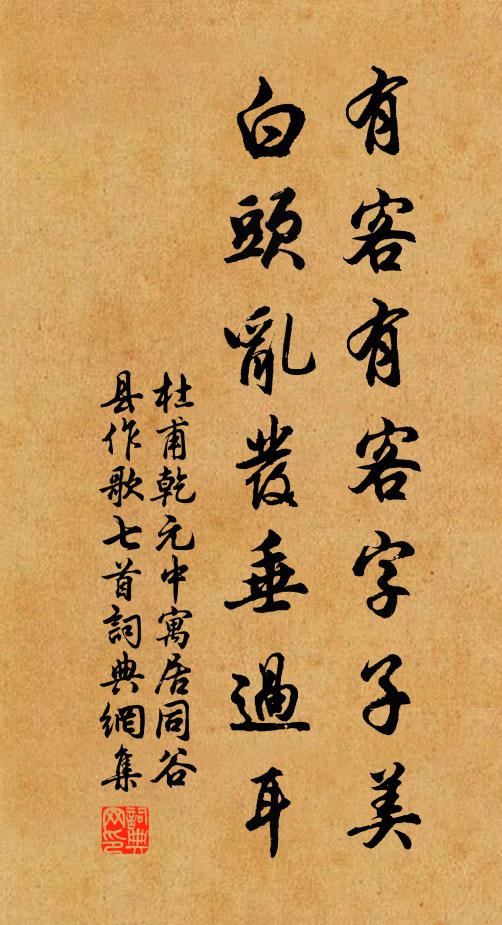 有客有客字子美
白頭亂發垂過耳
杜甫乾元中寓居同谷
县作歌七首詞典網集
詞典网印